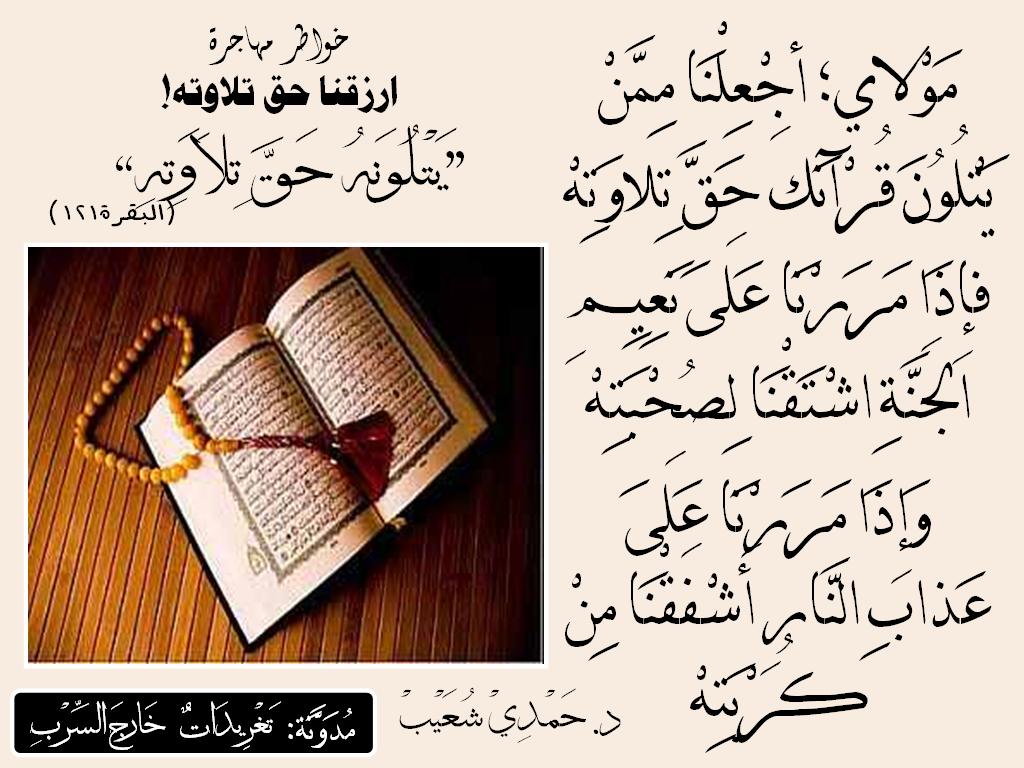 خواطر مهاجرة
ارزقنا حق تلاوته!
”يَتْلُونَهُ حَقَّ تِلاَوَتِهِ“
(البقرة ١٢١)
مَوْلاي؛ أجْعِلْنَا مِمَّنْ
يَتْلُونَ قُرْآنَك حَقَّ تِلاوَتِهْ
فإذَا مَرَرْنَا عَلَى نَعِيم
الَجنَّةِ اشْتَقْنَا لصُحْبَتِهْ
وَإذَا مَرَرْنَا عَلَى
عَذابَ النَّار أشْفقْنَا مِنْ
كُرْبَتِهْ
د. حَمْدِيْ شُعَيْب
مُدَوَّنَة: تَغْرِيدَاتٌ خَارِجَ السِّرْبِ